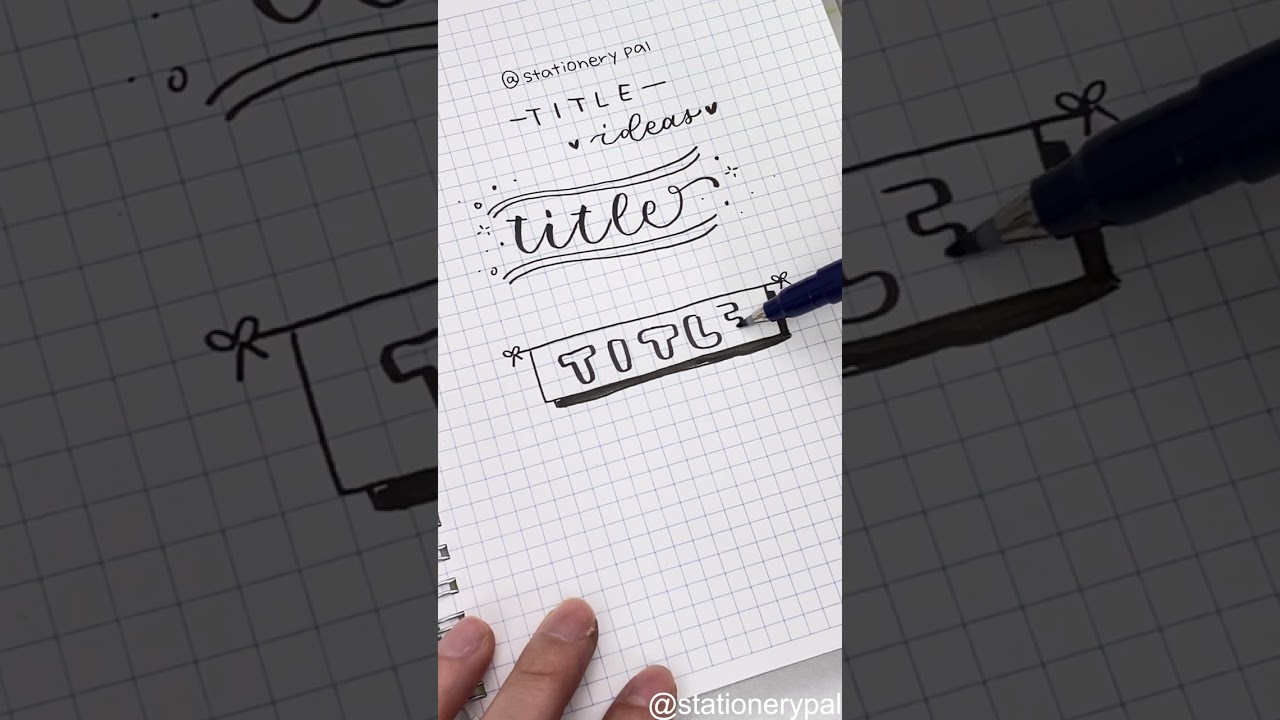 @stationery pal
-TITLE-
ideas
title
TITL
@stationerypal